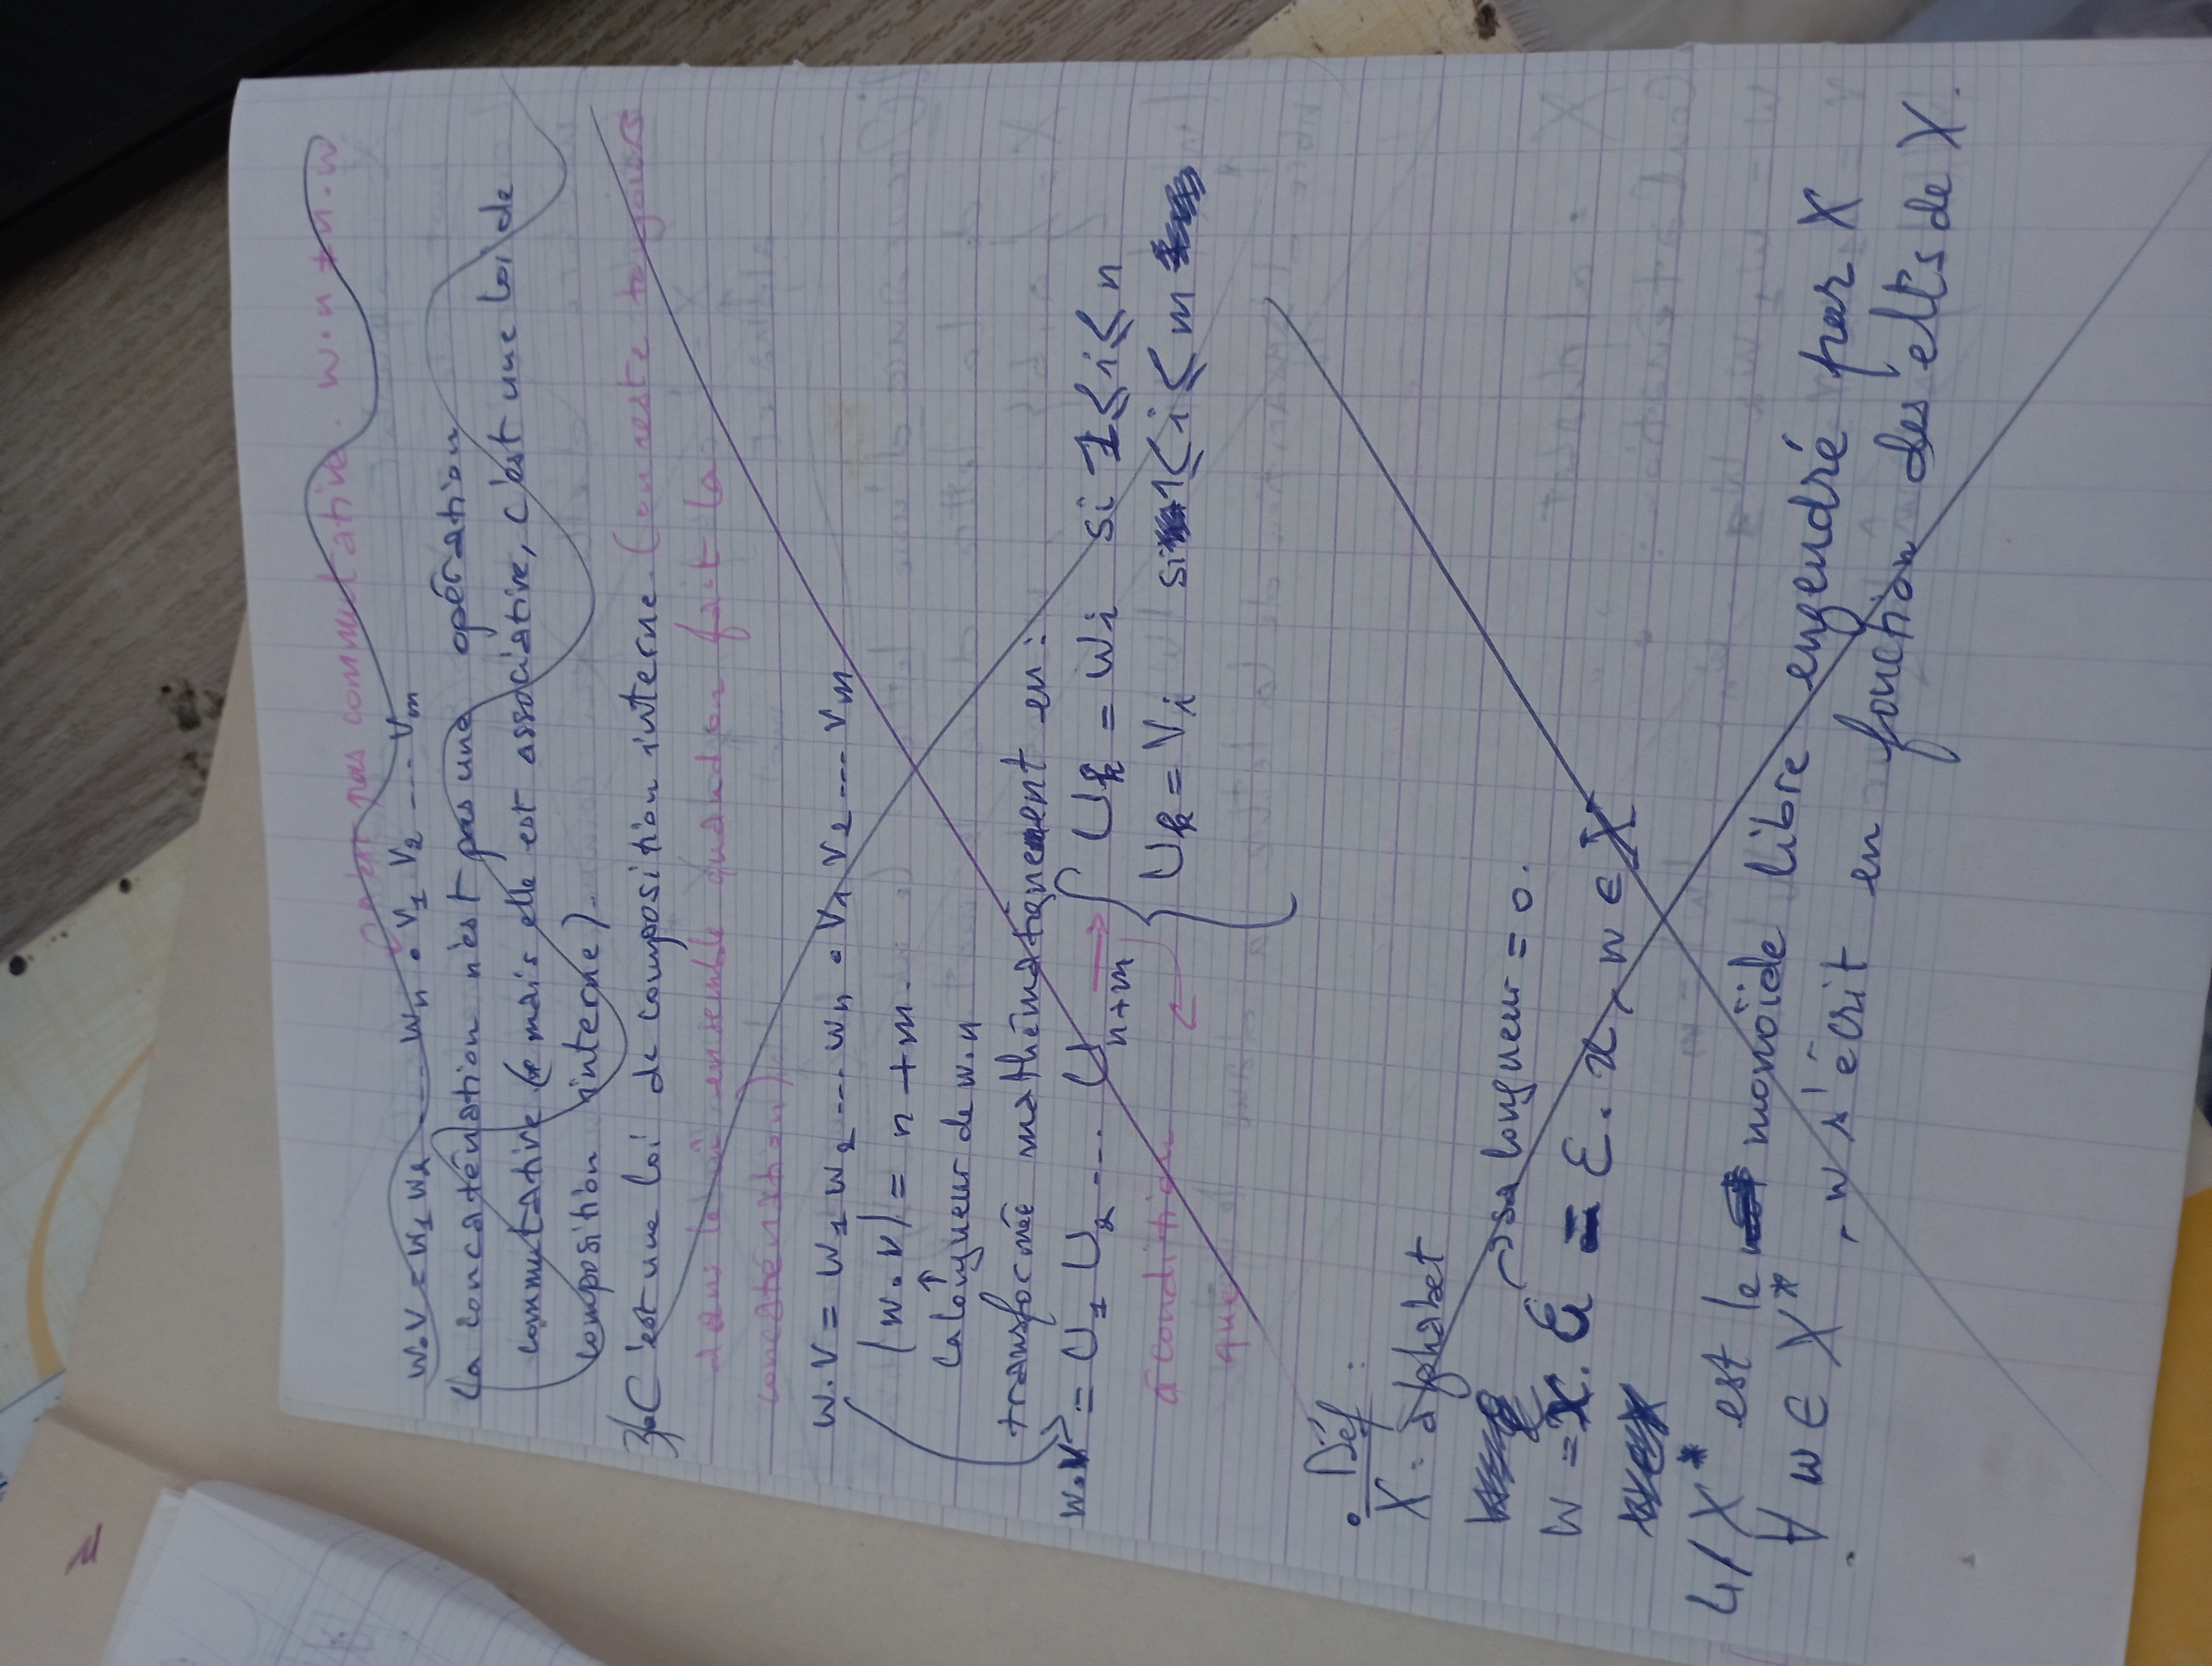 n'est pas commutative. w.n ≠ n.w
w.v = w1 w2 ... wn • v1 v2 ... vm
la concaténation n'est pas une opération
commutative ( mais elle est associative, c'est une loi de
composition interne).
3/ C'est une loi de composition interne. (on reste toujours
dans le m̂ ensemble quand on fait la
concaténation)
w.v = w1 w2 ... wn • v1 v2 ... vm
|w.v| = n + m.
↑
la longueur de w.n
transformée mathématiquement en :
w.v = U1 U2 ... Un+m → { Uk = wi si 1 ≤ i ≤ n
Uk = Vi si 1 ≤ i ≤ m
à condition
que
. Déf :
X : alphabet
→ sa longueur = 0.
w = x. ε = ε. x, w ∈ X
4/ X* est le monoïde libre engendré par X
∀ w ∈ X*, w s'écrit en fonction des elts de X.